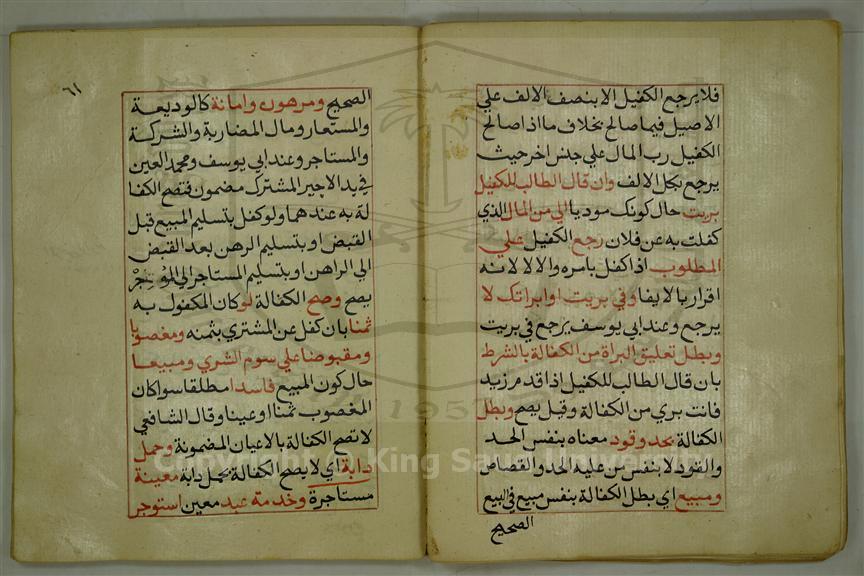 فلا يرجع الكفيل الا بنصف الالف علي
الاصيل فيما صالح بخلاف ما اذا صالح
الكفيل رب المال علي جنس اخر حيث
يرجع بكل الالف وان قال الطالب للكفيل
بريت حال كونك موديا الي من المال الذي
كفلت به عن فلان رجع الكفيل علي
المطلوب اذا كفل بامره والا لا لانه
اقرار بالايفا وفي بريت او ابراتك لا
يرجع وعند ابي يوسف يرجع في بريت
وبطل تعليق البراة من الكفالة بالشرط
بان قال الطالب للكفيل اذا قدم زيد
فانت بري من الكفالة وقيل يصح وبطل
الكفالة بحد وقود معناه بنفس الحد
والقود لا بنفس من عليه الحد والقصاص
ومبيع اي بطل الكفالة بنفس مبيع في البيع
الصحيح
٦١
الصحيح ومرهون وامانة كالوديعة
والمستعار ومال المضاربة والشركة
والمستاجر وعند ابي يوسف ومحمد العين
في يد الاجير المشترك مضمون فتصح الكفا
لة به عندهما ولو كفل بتسليم المبيع قبل
القبض او بتسليم الرهن بعد القبض
الي الراهن او بتسليم المستاجر الي الموجر
يصح وصح الكفالة لو كان المكفول به
ثمنا بان كفل عن المشتري بثمنه ومغصوبا
ومقبوضا علي سوم الشري ومبيعا
حال كون المبيع فاسدا مطلقا سوا كان
المغصوب ثمنا او عينا وقال الشافعي
لا تصح الكفالة بالاعيان المضمونة وحمل
دابة اي لا يصح الكفالة بحمل دابة معينة
مستاجرة وخدمة عبد معين استوجر
Copyright © King Saud University
1957